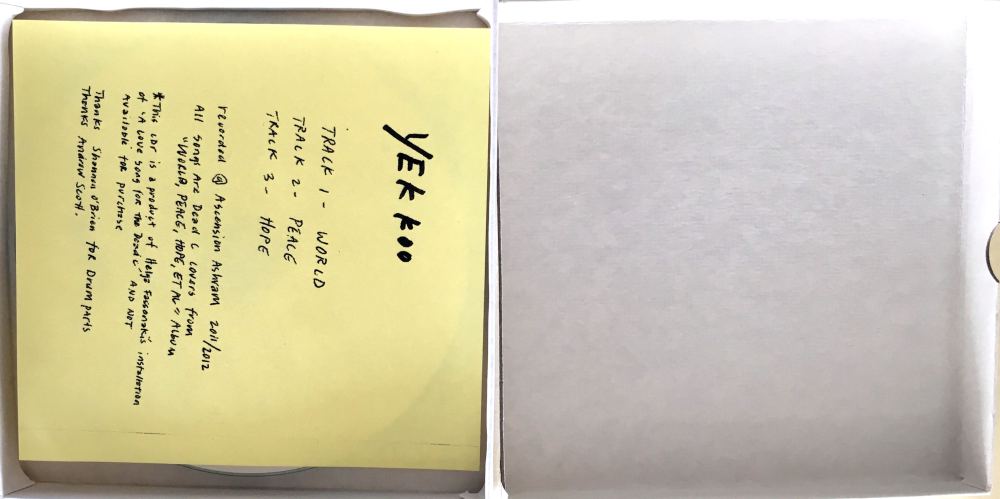 YEK KOO
TRACK 1 - WORLD
TRACK 2 - PEACE
TRACK 3 - HOPE
recorded @ Ascension Ashram 2011/2012
All songs Are Dead C covers from
"WORLD, PEACE, HOPE, ET AL" Album
*This CDr is a product of Helga Fassonaki's installation
of "A Love Song for The Dead C" AND NOT
Available for purchase
Thanks Shannon O'Brien for Drum parts
Thanks Andrew Scott.